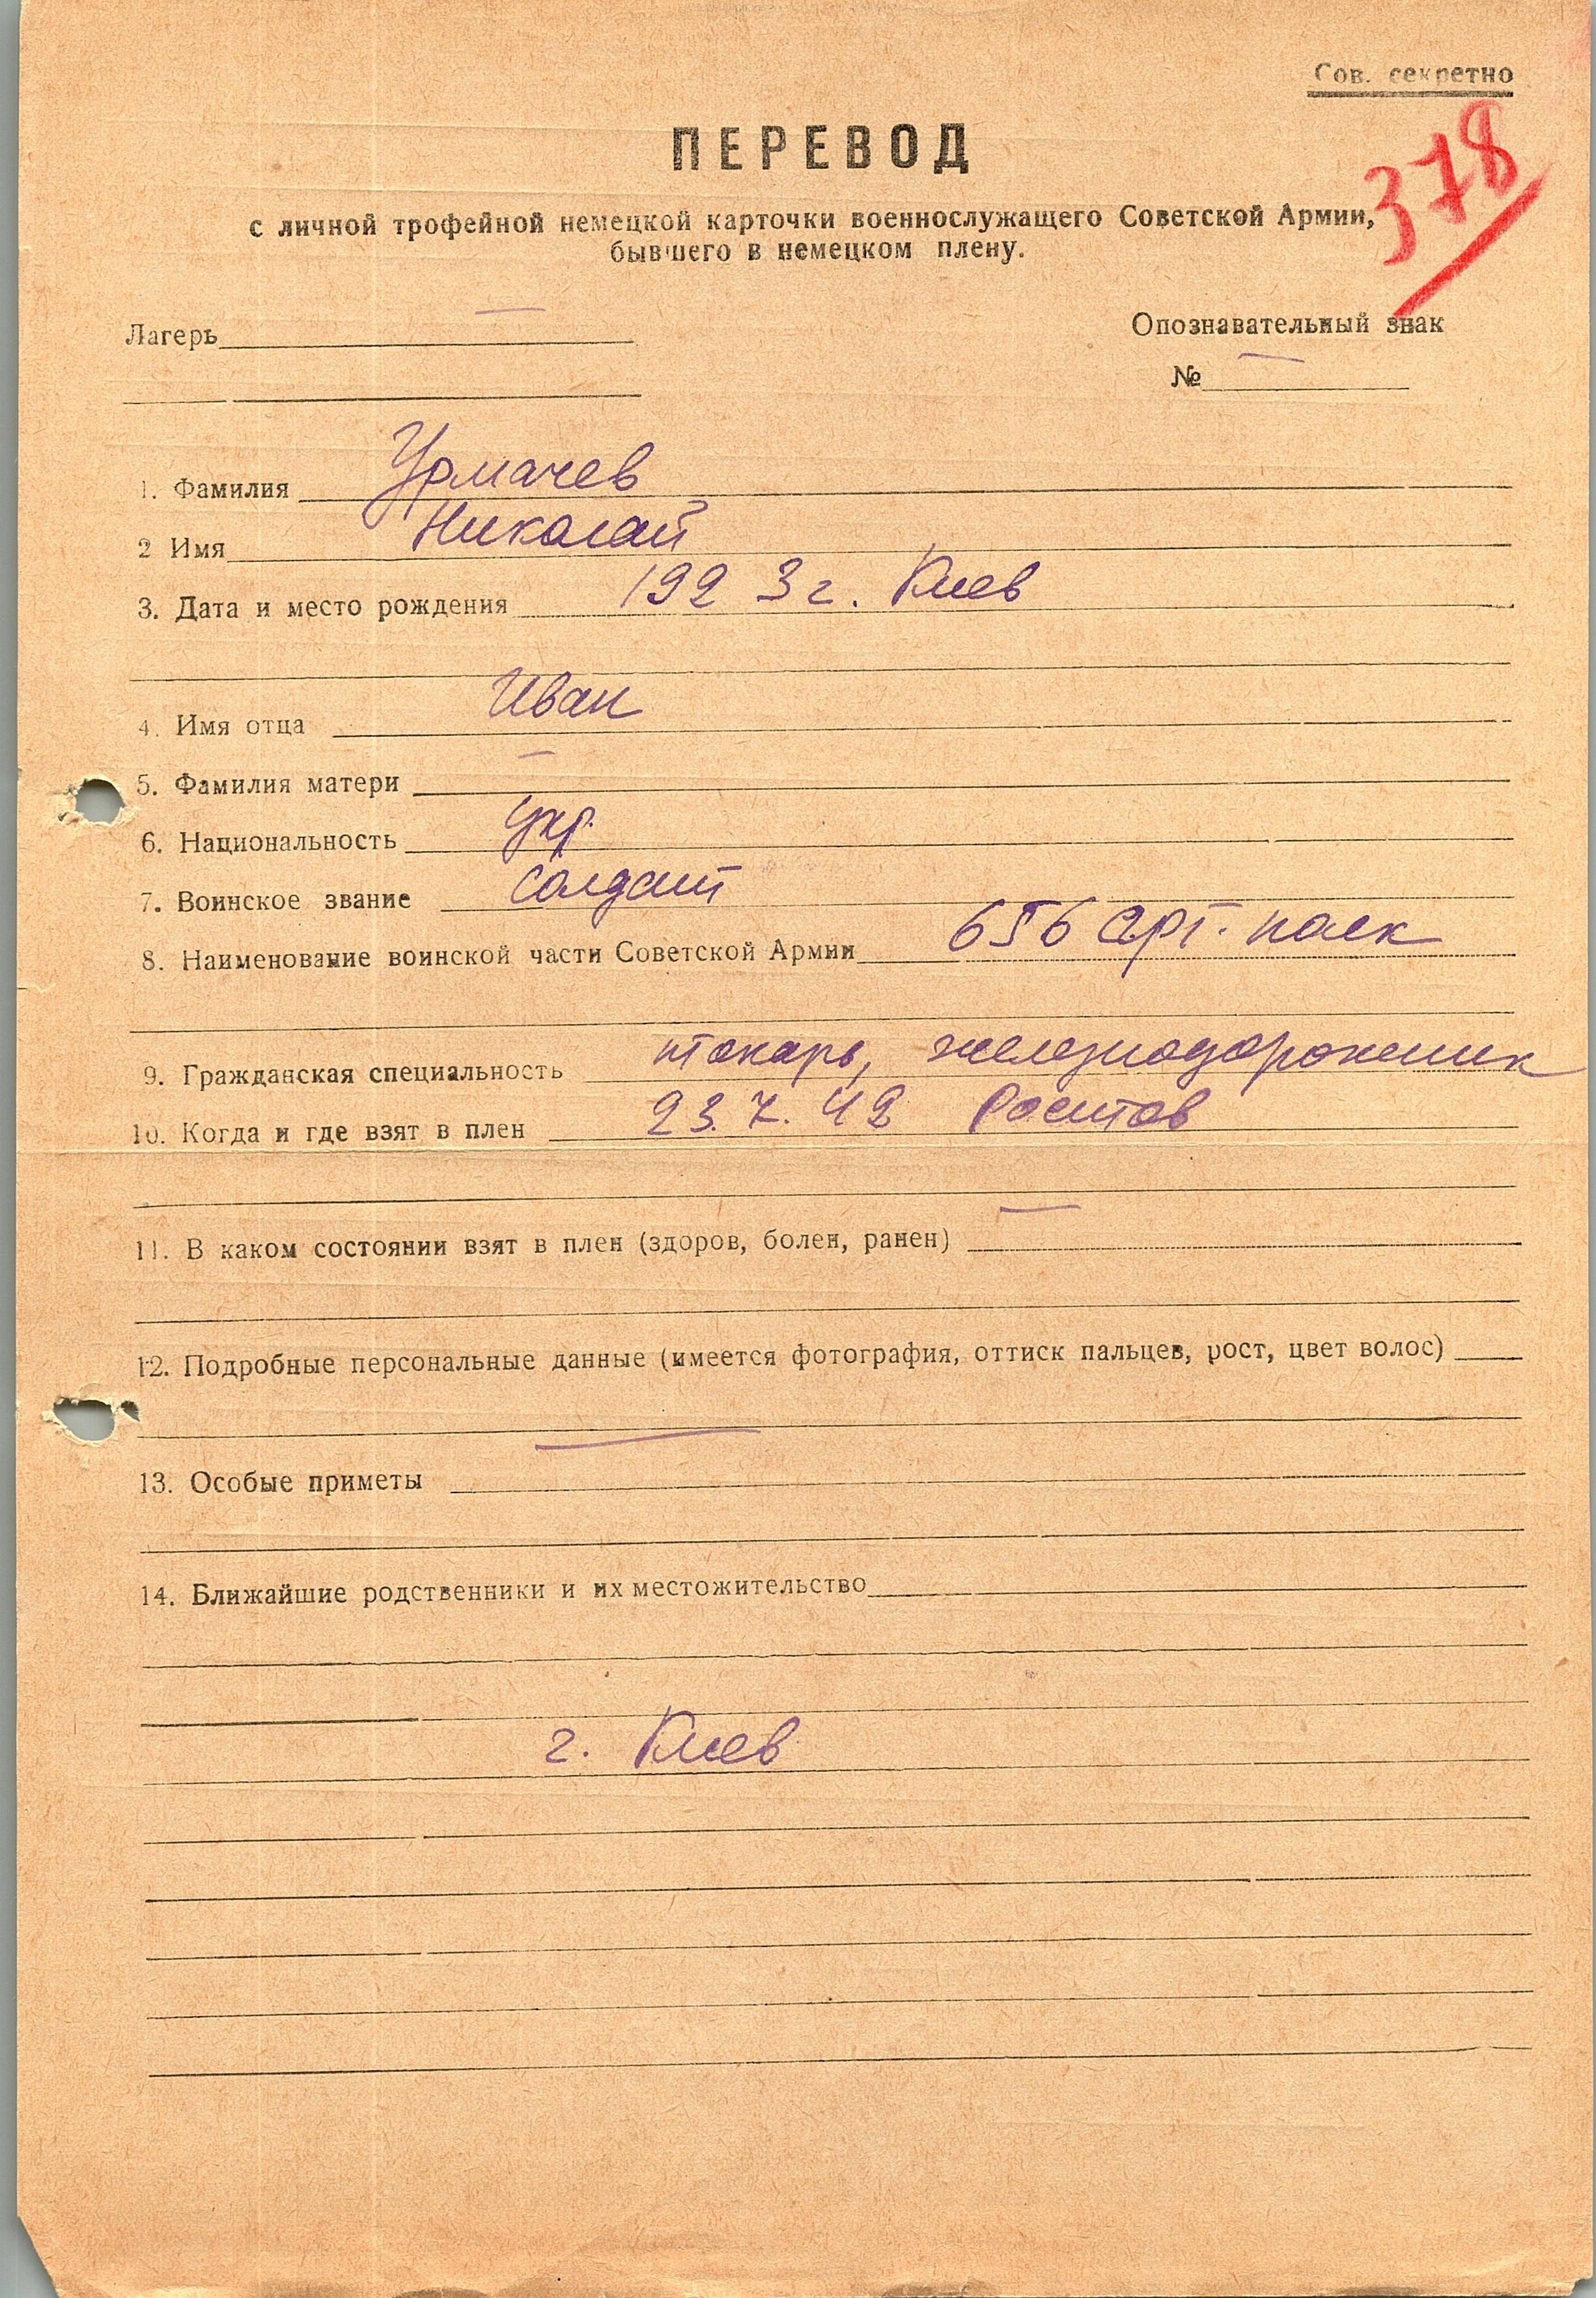 Сов. секретно
378
ПЕРЕВОД
с личной трофейной немецкой карточки военнослужащего Советской Армии,
бывшего в немецком плену.
Лагерь —
Опознавательный знак
№ —
1. Фамилия Урмачев
2 Имя Николай
3. Дата и место рождения 1923 г. Киев
4. Имя отца Иван
5. Фамилия матери —
6. Национальность укр.
7. Воинское звание Солдат
8. Наименование воинской части Советской Армии 656 арт. полк
9. Гражданская специальность токарь, железнодорожник
10. Когда и где взят в плен 23.7.42 Ростов
11. В каком состоянии взят в плен (здоров, болен, ранен) —
12. Подробные персональные данные (имеется фотография, оттиск пальцев, рост, цвет волос)
—
13. Особые приметы
14. Ближайшие родственники и их местожительство
г. Киев